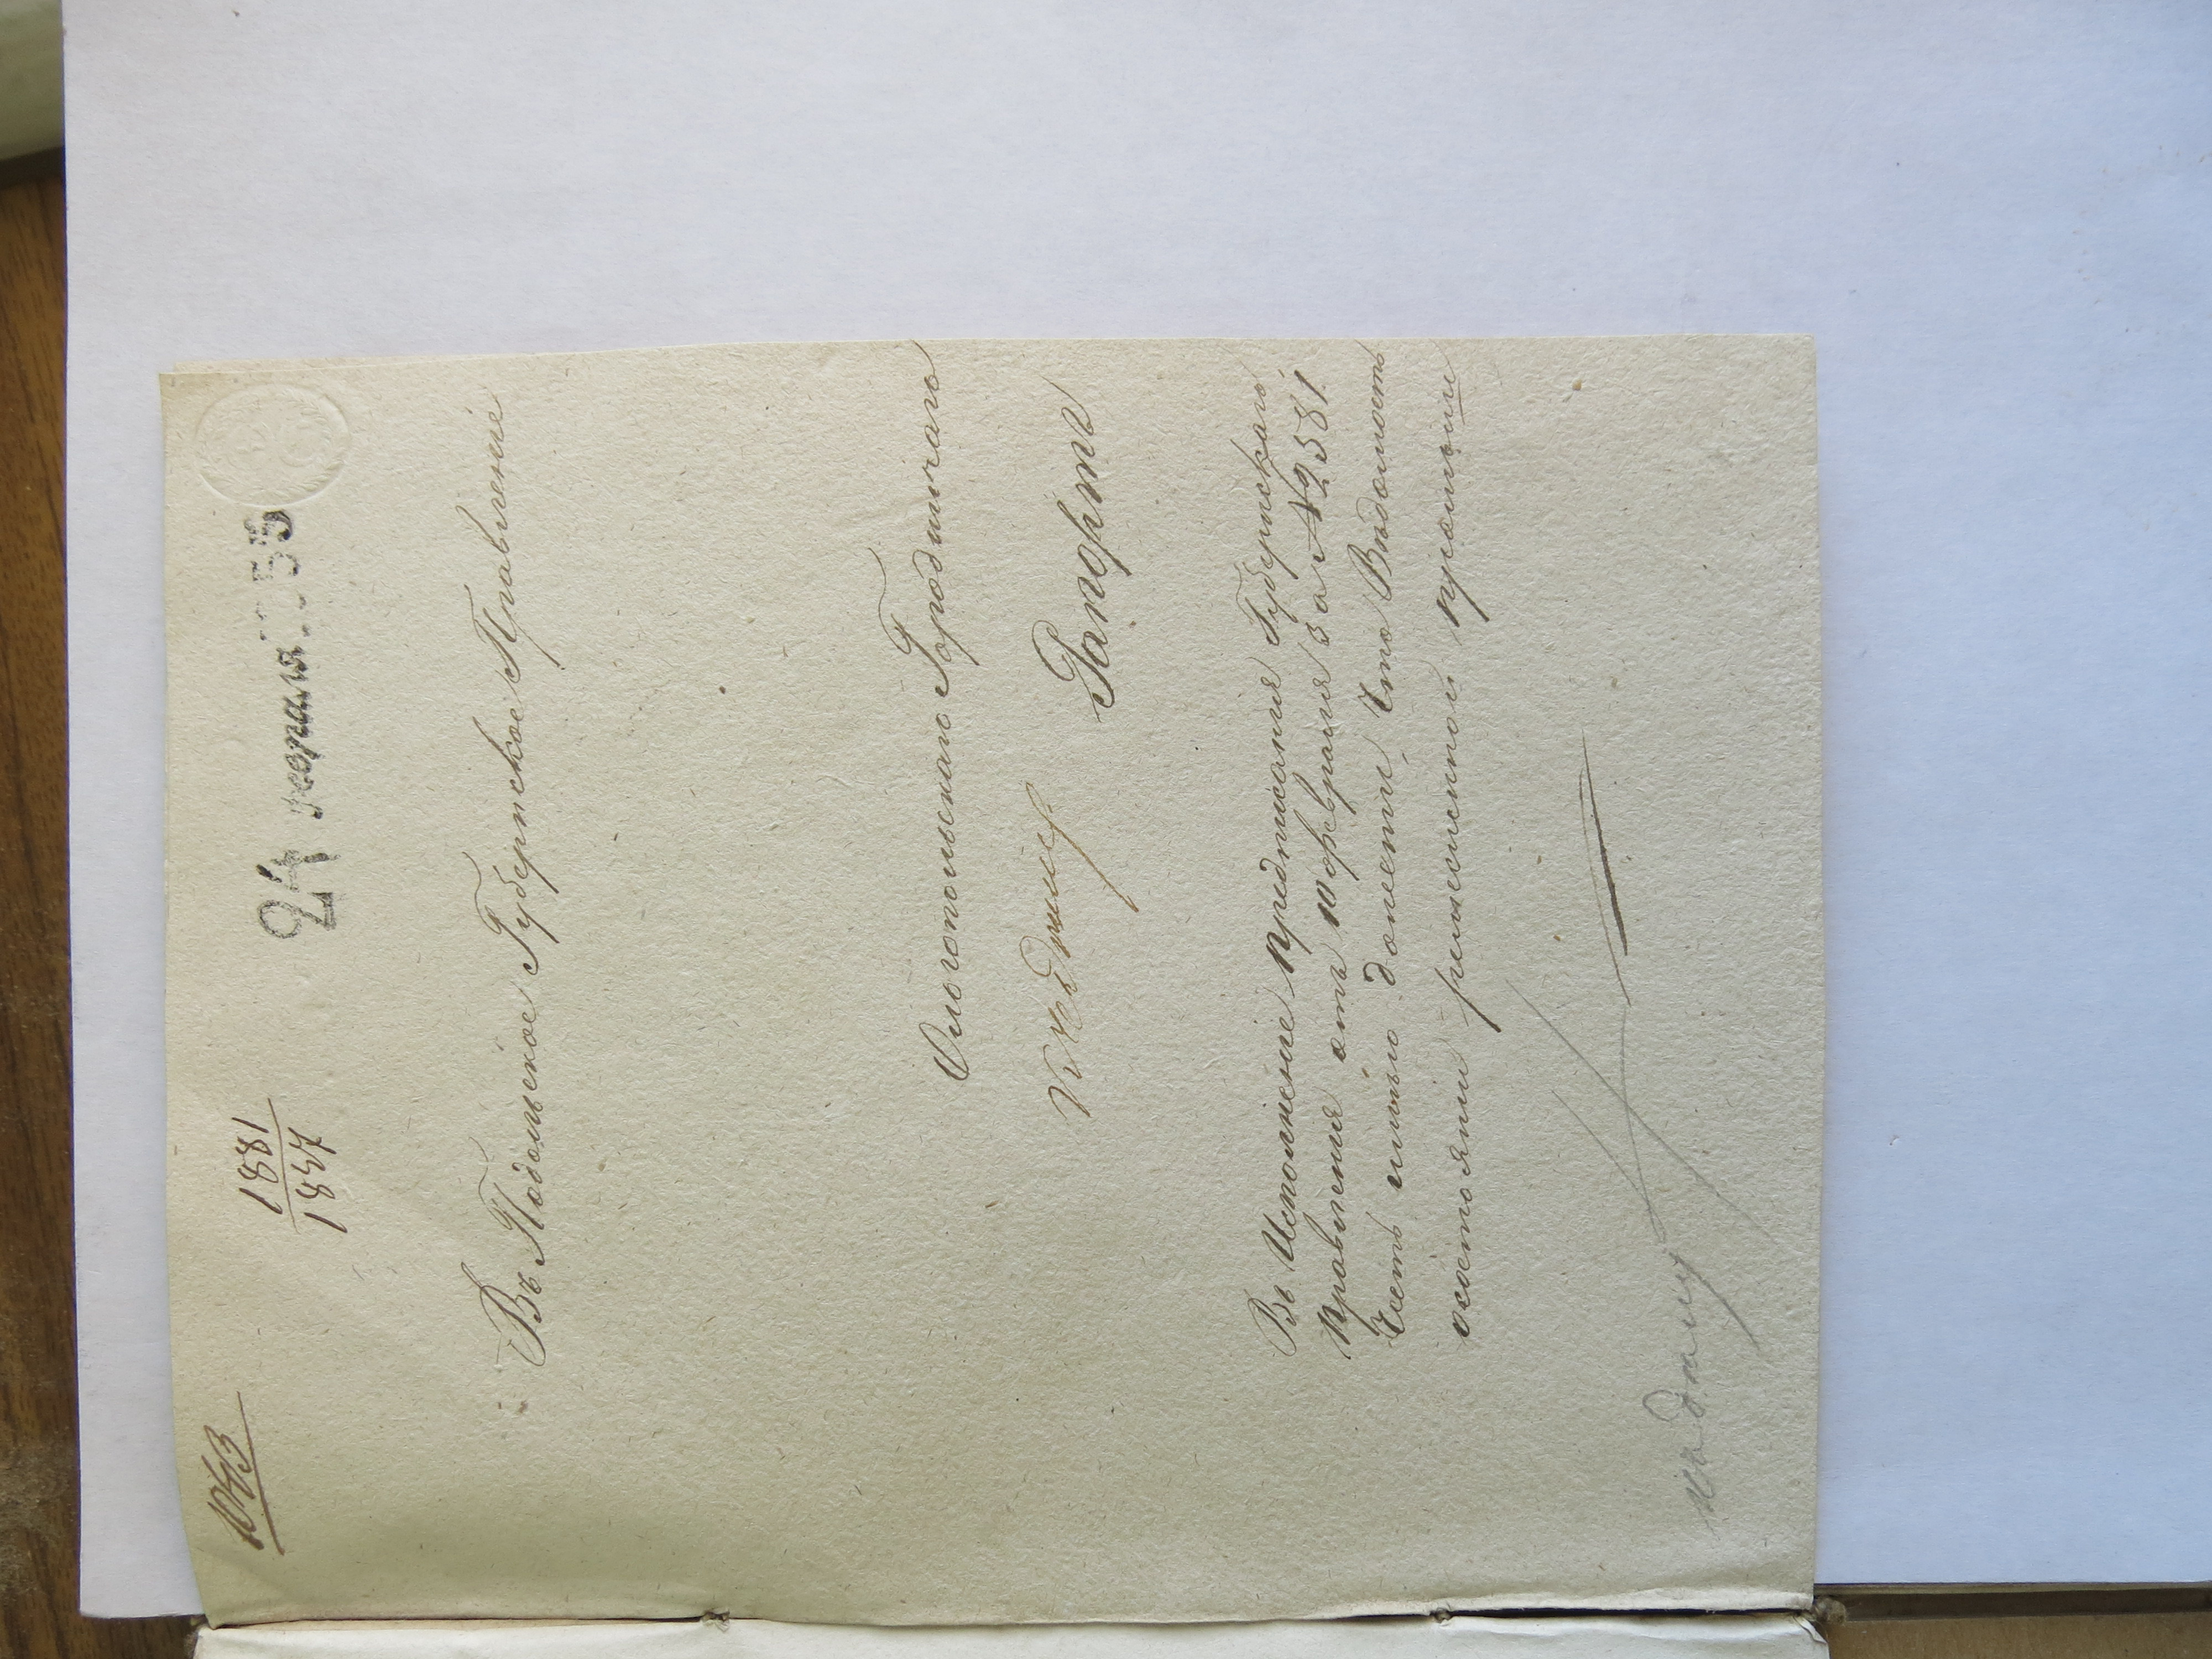 1881
1857
24 февраля 55
Въ Подольское Губернское Правление
Ольгопольскаго Городничаго
Рапортъ
Въ Исполнение предписания Губернскаго
правления отъ 10 февраля за № 2581
Честь имею донесть, что Ведомость
осостоянии ремесленной